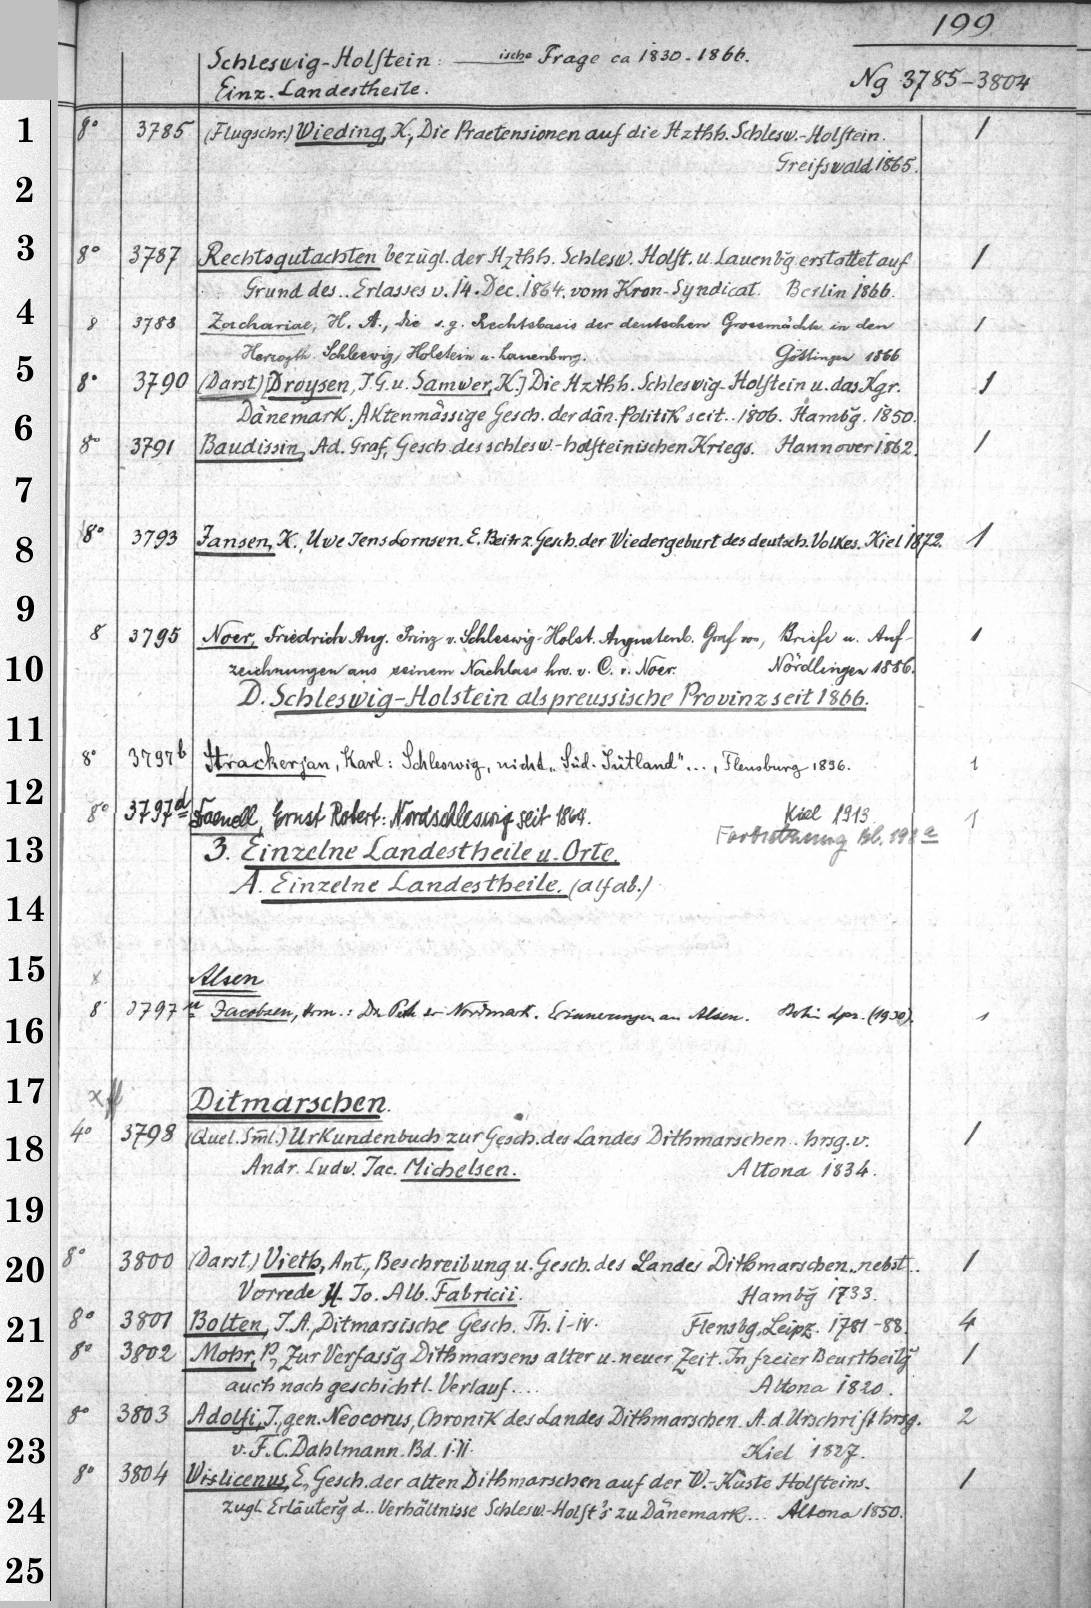 199
Schleswig-Holstein: ische Frage ca 1830-1866.
Einz. Landestheile.
Ng 3785-3804
1
8° 3785 (Flugschr.) Wieding, K., Die Praetensionen auf die Hzthh. Schlesw.-Holstein. 1
Greifswald 1865.
2
3
8° 3787 Rechtsgutachten bezügl. der Hzthh. Schlesw. Holst. u. Lauenbg erstattet auf 1
Grund des.. Erlasses v. 14. Dec. 1864. vom Kron-Syndicat. Berlin 1866.
4
8 3788 Zachariae, H. A., Die s.g. Rechtsbasis der deutschen Grossmächte in den 1
Herzogth. Schleswig, Holstein u. Lauenburg. Göttingen 1866
5
8° 3790 (Darst) [Droysen, J.G. u. Samwer, K.] Die Hzthh. Schleswig-Holstein u. das Kgr. 1
Dänemark. Aktenmässige Gesch. der dän. Politik seit.. 1806. Hambg. 1850.
6
8° 3791 Baudissin, Ad. Graf, Gesch. des schlesw.-holsteinischen Kriegs. Hannover 1862. 1
7
8
8° 3793 Jansen, K., Uwe Jens Lornsen. E. Beitr z. Gesch. der Wiedergeburt des deutsch. Volkes. Kiel 1872. 1
9
8 3795 Noer, Friedrich Aug. Prinz v. Schleswig-Holst. Augustenb. Graf von, Briefe u. Auf- 1
10
zeichnungen aus seinem Nachlass hrs. v. C. v. Noer. Nördlingen 1886.
D. Schleswig-Holstein als preussische Provinz seit 1866.
11
8° 3797b Strackerjan, Karl: Schleswig, nicht „Süd-Jütland"..., Flensburg 1896. 1
12
8° 3797d Ernst Robert: Nordschleswig seit 1864. Kiel 1913. 1
Fortsetzung Bl.
13
3. Einzelne Landestheile u. Orte.
A. Einzelne Landestheile. (alfab.)
14
15
x Alsen
8 3797 Jacobsen, Erinnerungen an Alsen. (1930). 1
16
17
x Ditmarschen.
4° 3798 (Quel. Sml.) Urkundenbuch zur Gesch. des Landes Dithmarschen.. hrsg. v. 1
18
Andr. Ludw. Jac. Michelsen. Altona 1834.
19
20
8° 3800 (Darst.) Vieth, Ant., Beschreibung u. Gesch. des Landes Dithmarschen.. nebst.. 1
Vorrede Jo. Alb. Fabricii. Hambg 1733.
21
8° 3801 Bolten, J.A., Ditmarsische Gesch. Th. I-IV. Flensbg, Leipz. 1781-88. 4
8° 3802 Mohr, P., Zur Verfassg Dithmarsens alter u. neuer Zeit. In freier Beurtheilg 1
22
auch nach geschichtl. Verlauf.... Altona 1820.
8° 3803 Adolfi, J., gen. Neocorus, Chronik des Landes Dithmarschen. A. d. Urschrift hrsg. 2
23
v. F. C. Dahlmann. Bd. I. II. Kiel 1827.
8° 3804 Wislicenus, E., Gesch. der alten Dithmarschen auf der W.-Küste Holsteins. 1
24
zugl. Erläuterg d.. Verhältnisse Schlesw.-Holst's zu Dänemark... Altona 1850.
25